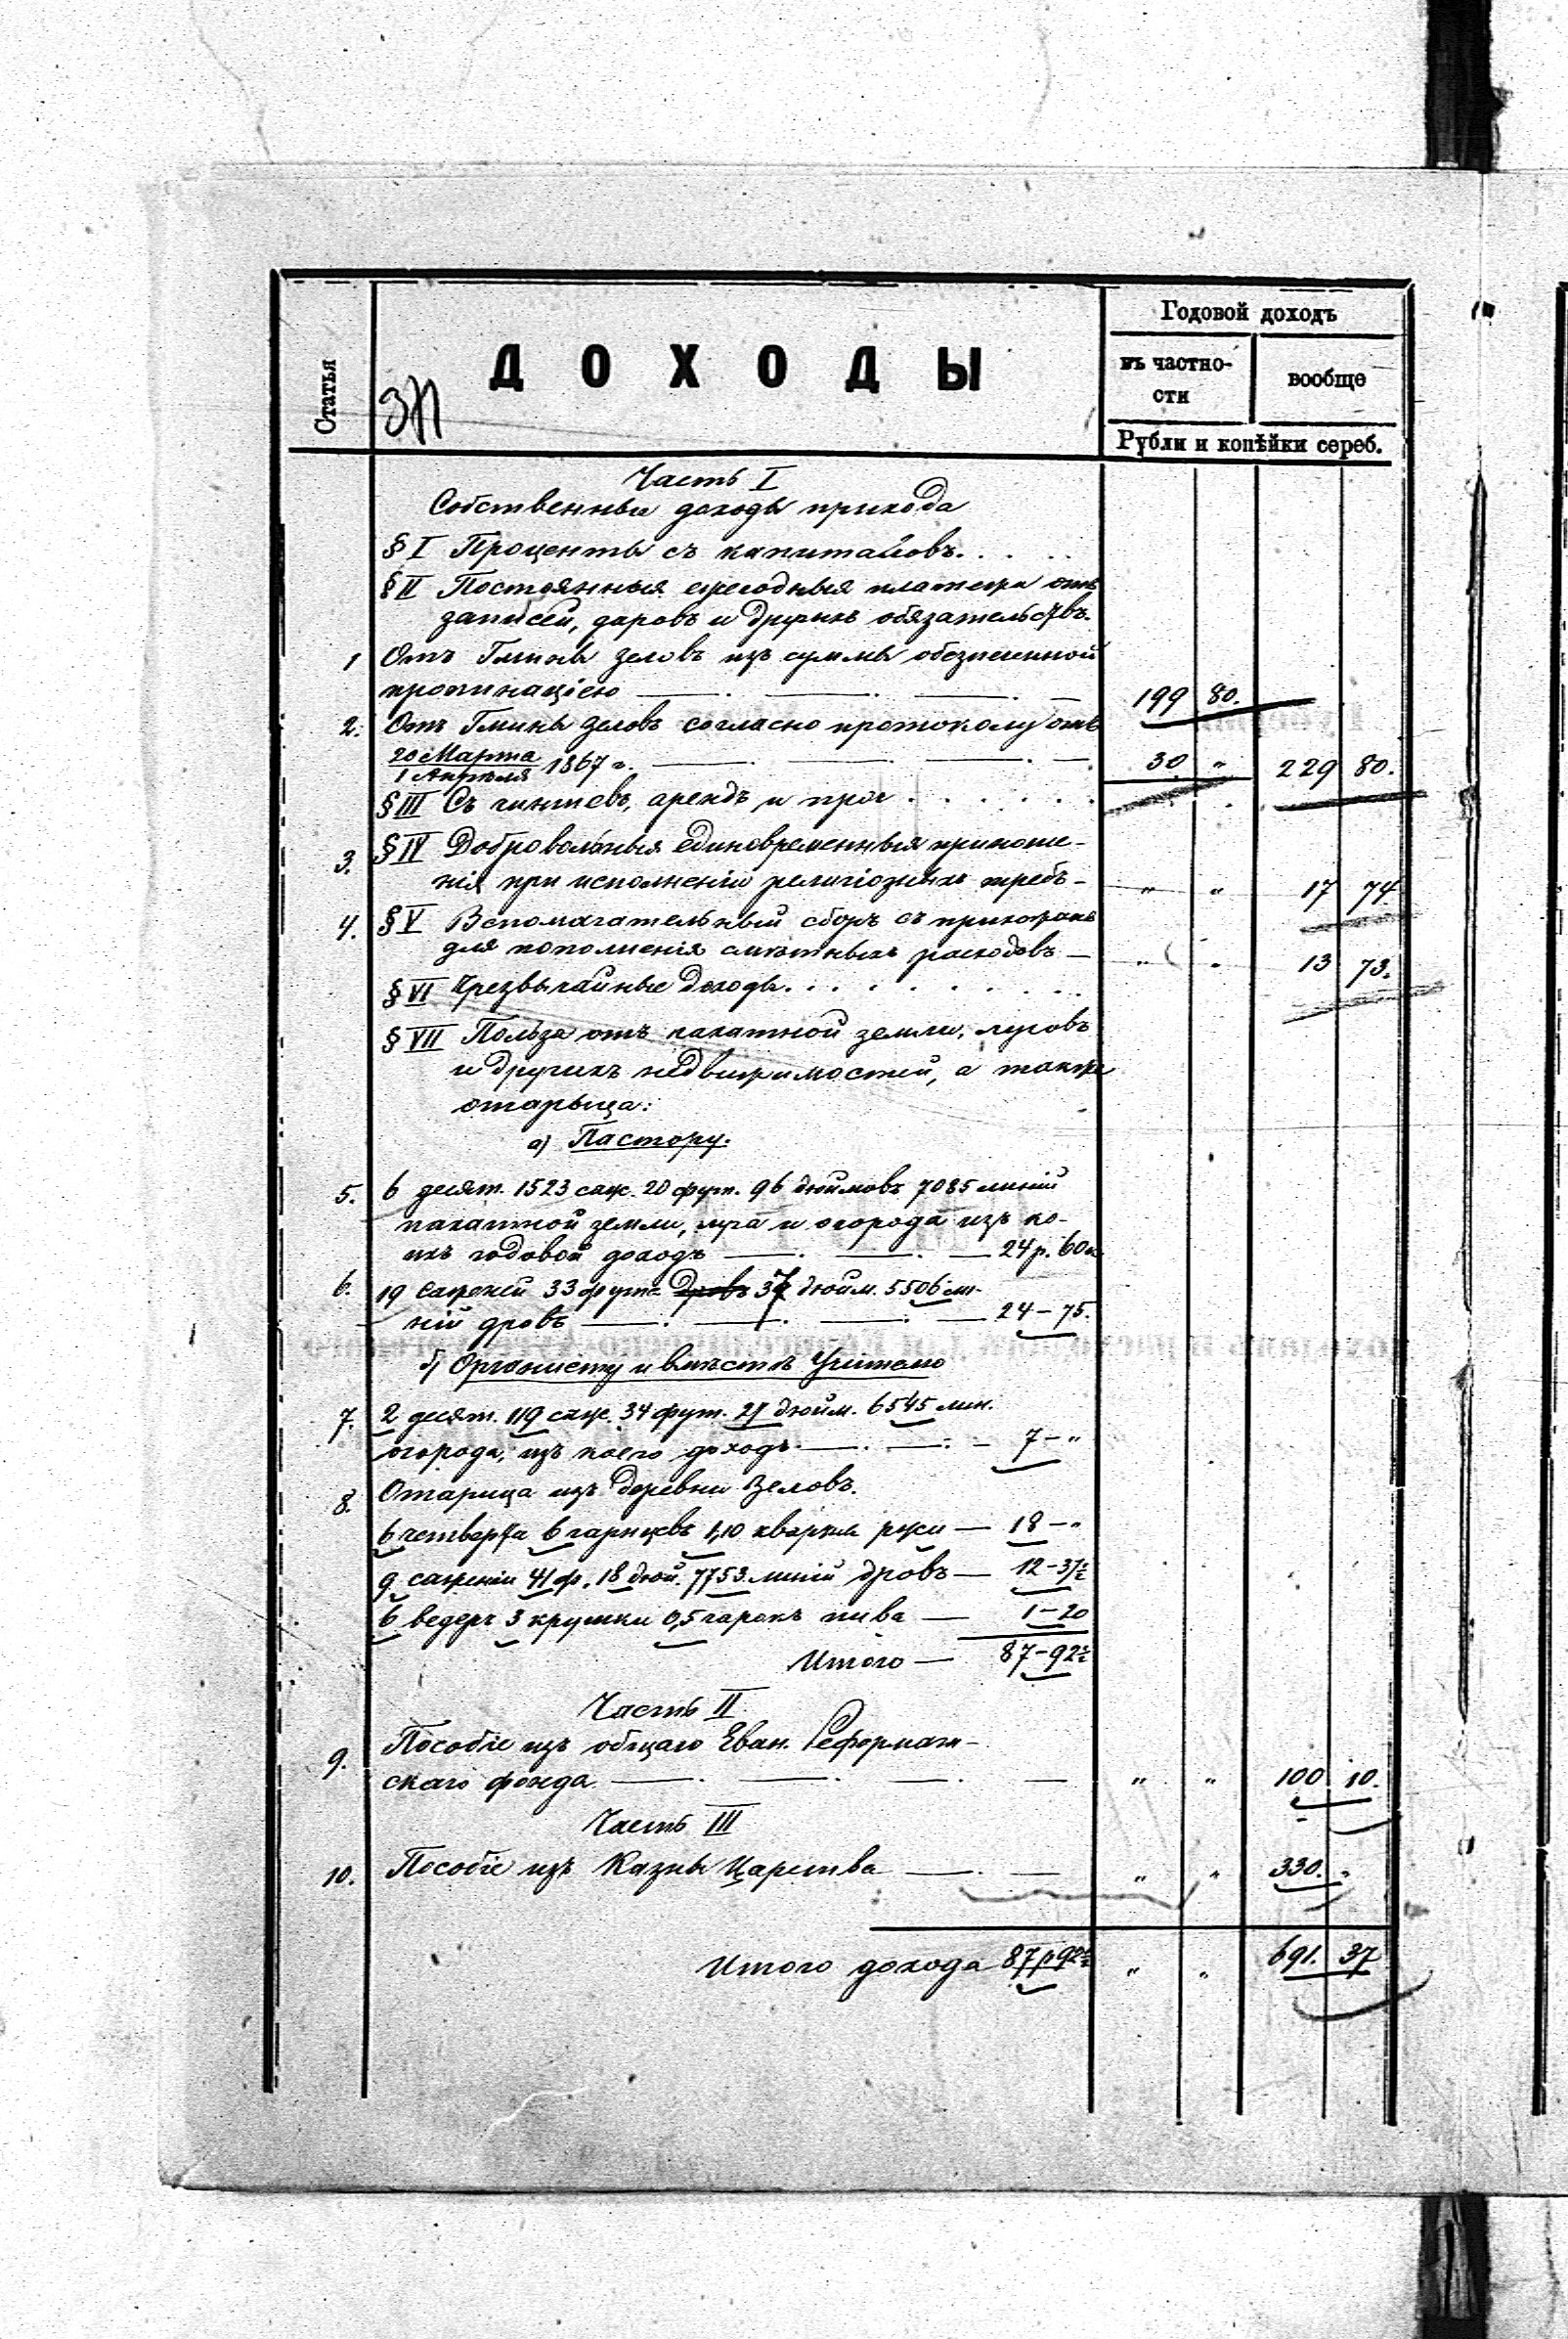 Статья
ДОХОДЫ
Годовой доходъ
въ частно-
сти
вообще
Рубли и копѣйки сереб.
Часть I
Собственные доходы прихода
§ I Проценты съ капиталовъ. . . .
§ II Постоянныя ежегодныя платежи отъ
записей, даровъ и другихъ обязательствъ.
1 Отъ Гмины Зеловъ изъ суммы обезпеченной
пропинаціею — 199 80.
2. Отъ Гмины Зеловъ согласно протоколу отъ
20 Марта
1 Апрѣля 1867 г. — 30 „ 229 80.
§ III Съ чиншевъ, арендъ и проч . . . . . .
3. § IV Добровольныя единовременныя приноше-
нія при исполненіи религіозныхъ требъ - „ „ 17 74
4. § V Вспомагательный сборъ съ прихожанъ
для пополненія смѣтныхъ расходовъ — „ „ 13 73.
§ VI Чрезвычайные доходы. . . . . . . .
§ VII Польза отъ пахатной земли, луговъ
и другихъ недвижимостей, а также
отарыца:
а) Пастору.
5. 6 десят. 1523 саж. 20 фут. 96 дюймовъ 7085 линій
пахатной земли, луга и огорода изъ ко-
ихъ годовой доходъ — 24 р. 60 к.
6. 19 саженей 33 фут. дровъ 37 дюйм. 5506 ли-
ній дровъ — 24 - 75.
б) Органисту и вмѣстѣ Учителю
7. 2 десят. 119 саж. 34 фут. 21 дюйм. 6545 лин.
огорода, изъ коего доходъ — 7 - „
8. Отарица изъ деревни Зеловъ.
6 четверта 6 гарнцевъ 1,10 кварты ржи — 18 - „
9 саженій 41 ф. 18 дюй. 7753 линій дровъ — 12 - 37½
6 ведеръ 3 кружки 0,5 чарокъ пива — 1 - 20
Итого — 87 - 92½
Часть II
9. Пособіе изъ общаго Еван. Реформат-
скаго фонда — „ „ 100 10.
Часть III
10. Пособіе изъ Казны Царства — „ „ 330. „
Итого дохода 87 р 92½ „ „ 691. 37